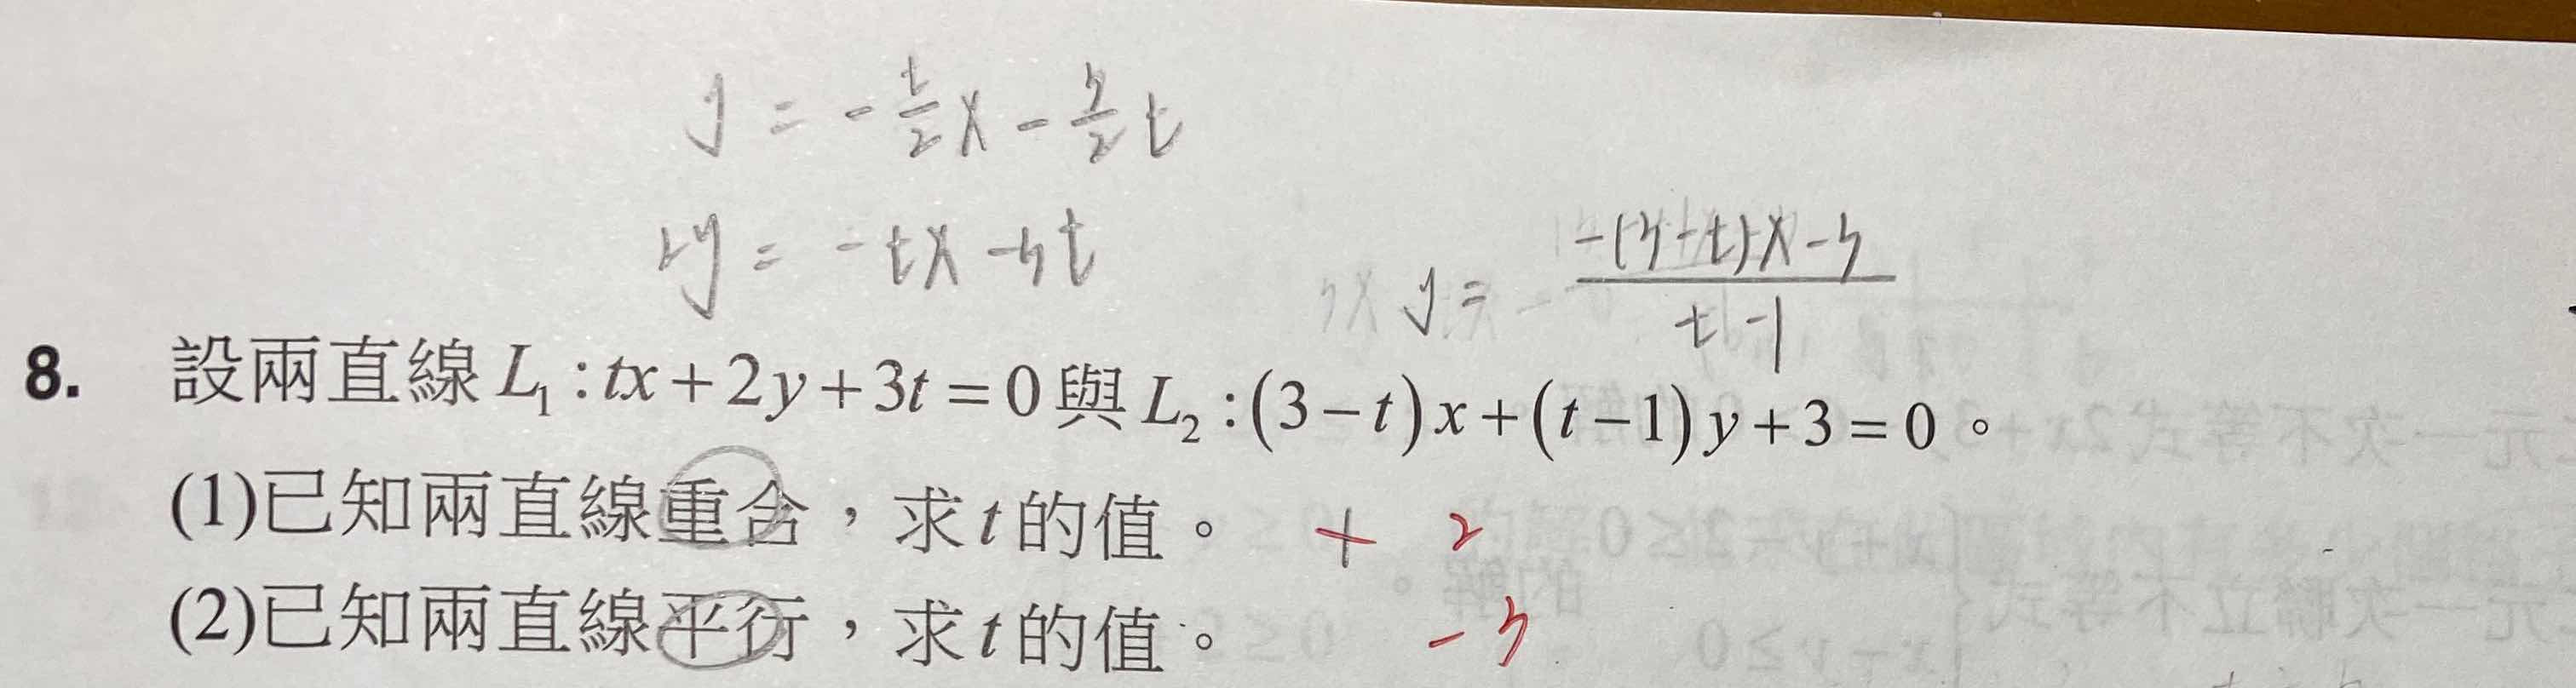 y = -\frac{t}{2}x - \frac{3}{2}t
2y = -tx - 3t
y = \frac{-(3-t)x-3}{t-1}
8. 設兩直線 L₁ : tx + 2y + 3t = 0 與 L₂ : (3 − t)x + (t − 1)y + 3 = 0。
(1)已知兩直線重合，求 t 的值。 + 2
(2)已知兩直線平行，求 t 的值。 -3